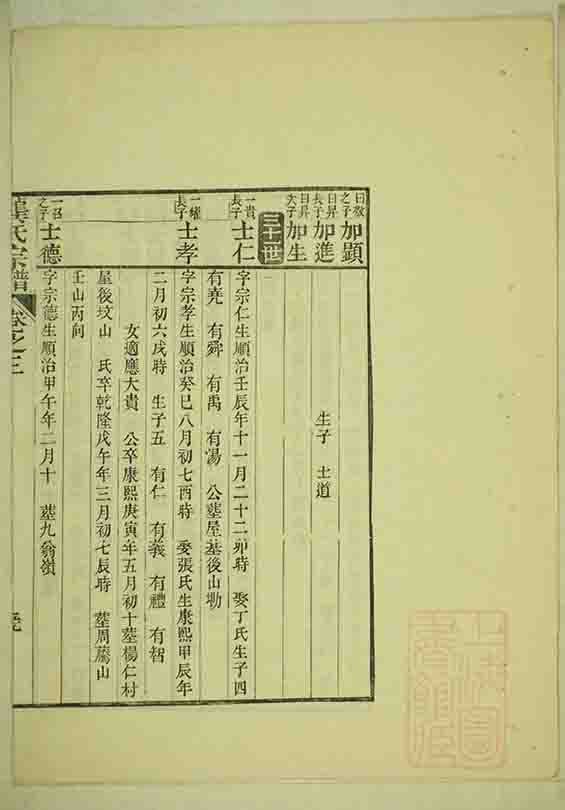 曰敖之子 加顯
曰昇長子 加進 生子 士道
曰昇次子 加生
三十世
一貴長子 士仁 字宗仁生順治壬辰年十一月二十二卯時 娶丁氏生子四
有堯 有舜 有禹 有湯 公墓屋基後山塝
一耀長子 士孝 字宗孝生順治癸巳八月初七酉時 娶張氏生康熙甲辰年
二月初六戌時 生子五 有仁 有義 有禮 有智
女適應大貴 公卒康熙庚寅年五月初十墓楊仁村
屋後坟山 氏卒乾隆戊午年三月初七辰時 墓周蔭山
壬山丙向
之子 士德 字宗德生順治甲午年二月十 墓九翁嶺
氏宗譜 卷之三
上海圖書館藏